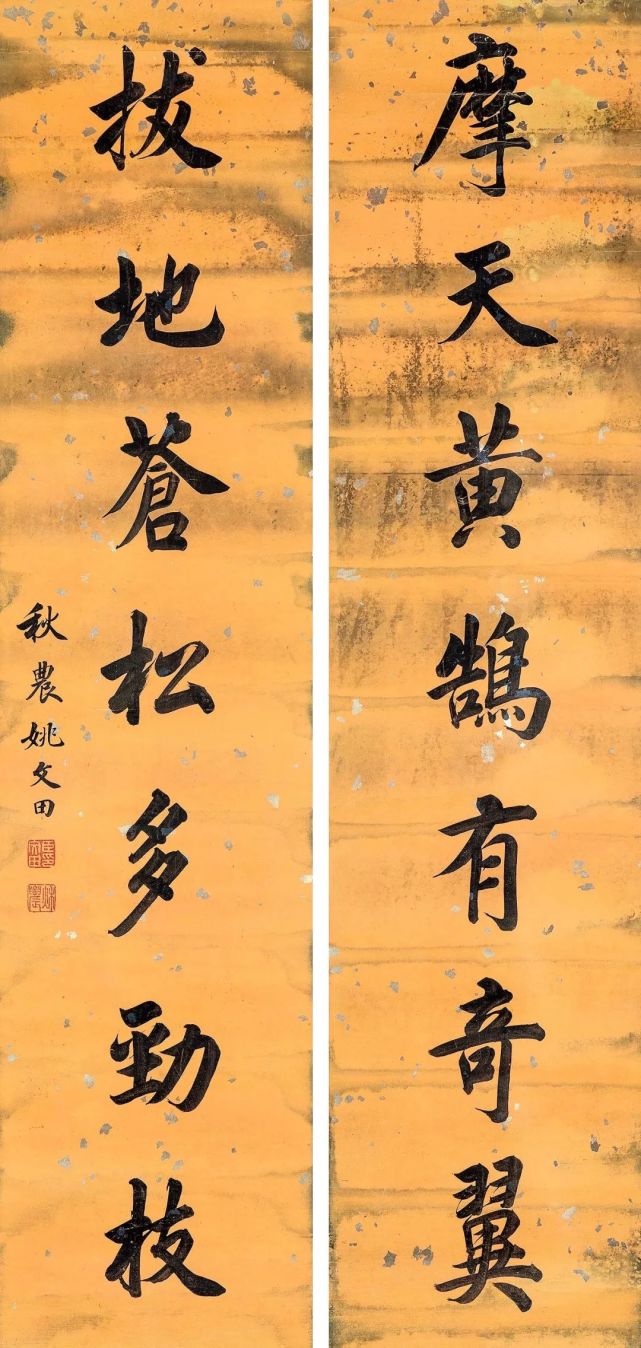 摩天黄鵠有奇翼
拔地蒼松多勁枝
秋農姚文田